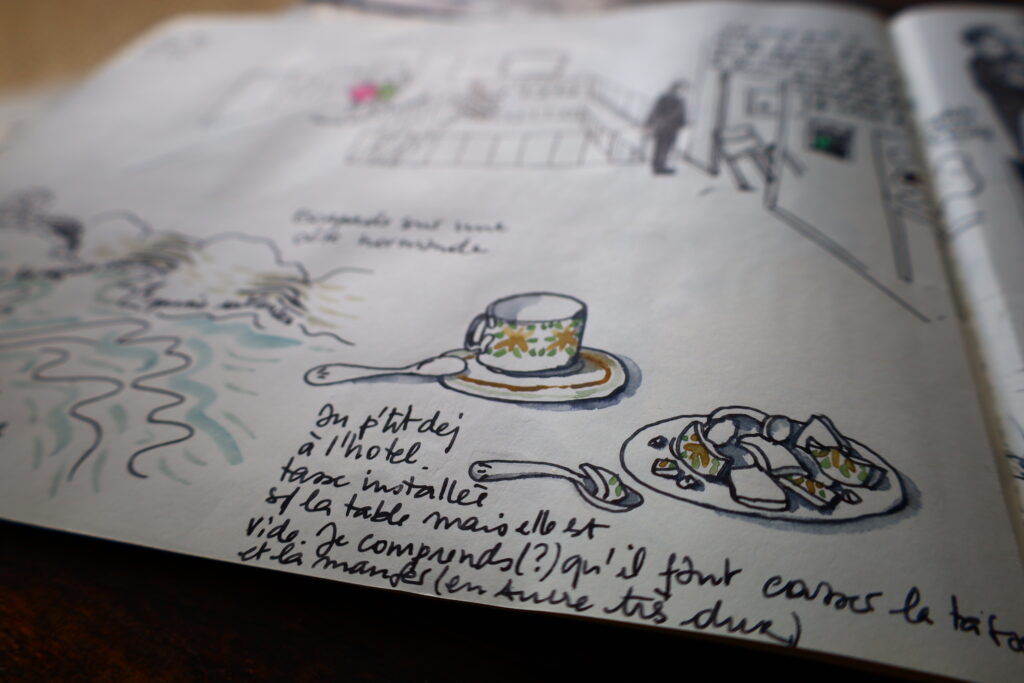 sur une
côte normande
Au p'tit dej
à l'hotel.
tasse installée
s/ la table mais elle est
vide. Je comprends (?) qu'il faut casser la
et la manger (en sucre très dur)